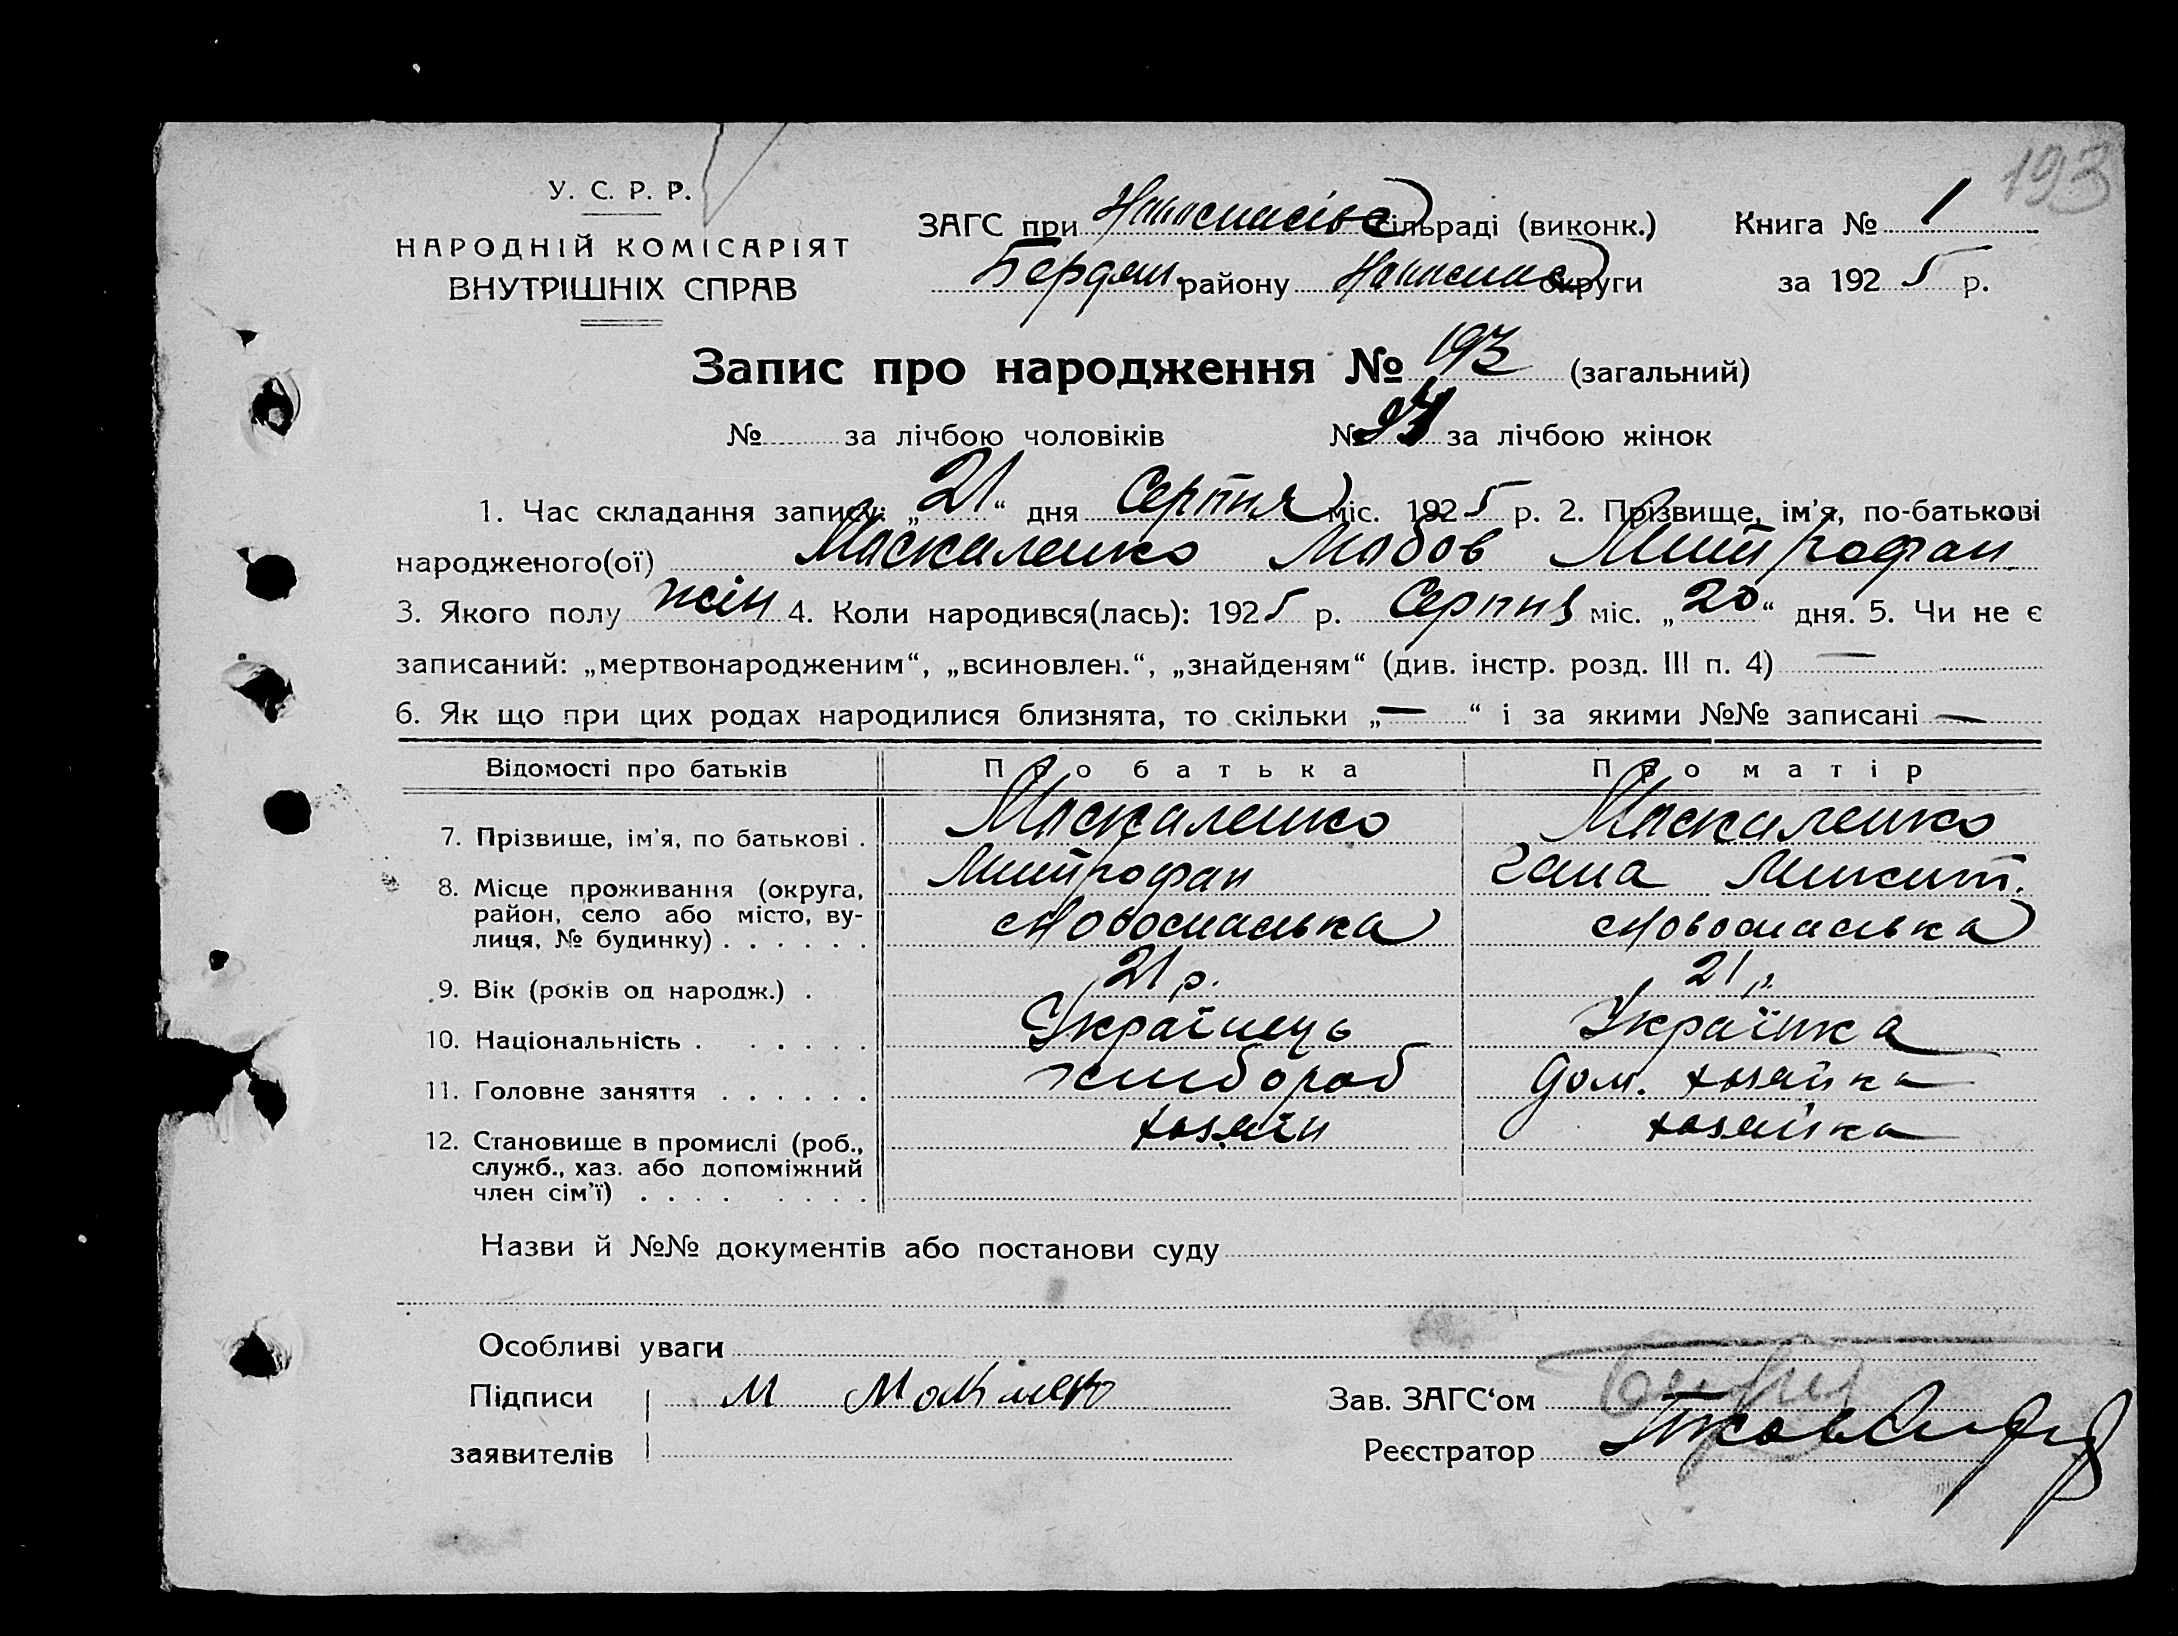 193
У. С. Р. Р.
НАРОДНІЙ КОМІСАРІЯТ
ВНУТРІШНІХ СПРАВ
ЗАГС при сільраді (виконк.)
Книга № 1
Бердян. району округи
за 1925 р.
Запис про народження № 193 (загальний)
№ за лічбою чоловіків № за лічбою жінок
1. Час складання запису: „21“ дня Серпня міс. 1925 р. 2. Прізвище, ім'я, по-батькові
народженого(ої) Маскаленко Любов Митрофан
3. Якого полу жін 4. Коли народився(лась): 1925 р. Серпня міс. „20“ дня. 5. Чи не є
записаний: „мертвонародженим“, „всиновлен.“, „знайденям“ (див. інстр. розд. III п. 4) —
6. Як що при цих родах народилися близнята, то скільки „—“ і за якими №№ записані —
Відомості про батьків Про батька Про матір
7. Прізвище, ім'я, по батькові . Маскаленко Маскаленко
Митрофан Гана Микит.
8. Місце проживання (округа, район, село або місто, вулиця, № будинку) . . . . . . Новоспаська Новоспаська
9. Вік (років од народж.) . 21 р. 21 р.
10. Національність . . . . . . Українець Українка
11. Головне заняття . . . . . . хлибороб Дом. хозяйка
12. Становище в промислі (роб., служб., хаз. або допоміжний член сім'ї) . . . . . . . . хозяїн хозяйка
Назви й №№ документів або постанови суду
Особливі уваги
Підписи М
заявителів
Зав. ЗАГС‘ом
Реєстратор